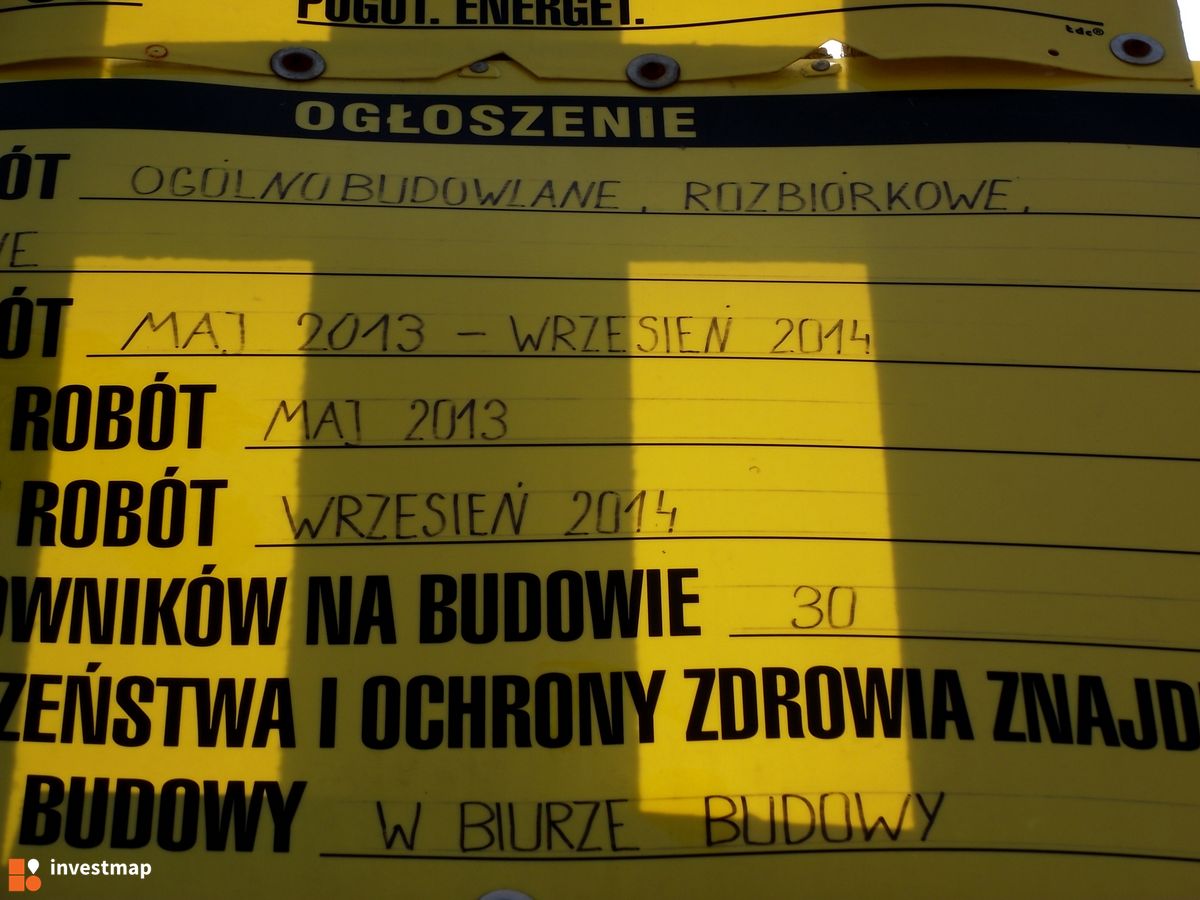 POGOT. ENERGET.
tdc®
OGŁOSZENIE
ÓT OGÓLNOBUDOWLANE, ROZBIÓRKOWE,
WE
ÓT MAJ 2013 - WRZESIEŃ 2014
ROBÓT MAJ 2013
ROBÓT WRZESIEŃ 2014
OWNIKÓW NA BUDOWIE 30
ZEŃSTWA I OCHRONY ZDROWIA ZNAJD
BUDOWY W BIURZE BUDOWY
investmap